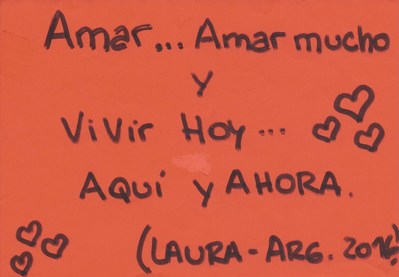 Amar... Amar mucho
y
Vivir Hoy...
AQUÍ y AHORA.
(LAURA - ARG. 2016)